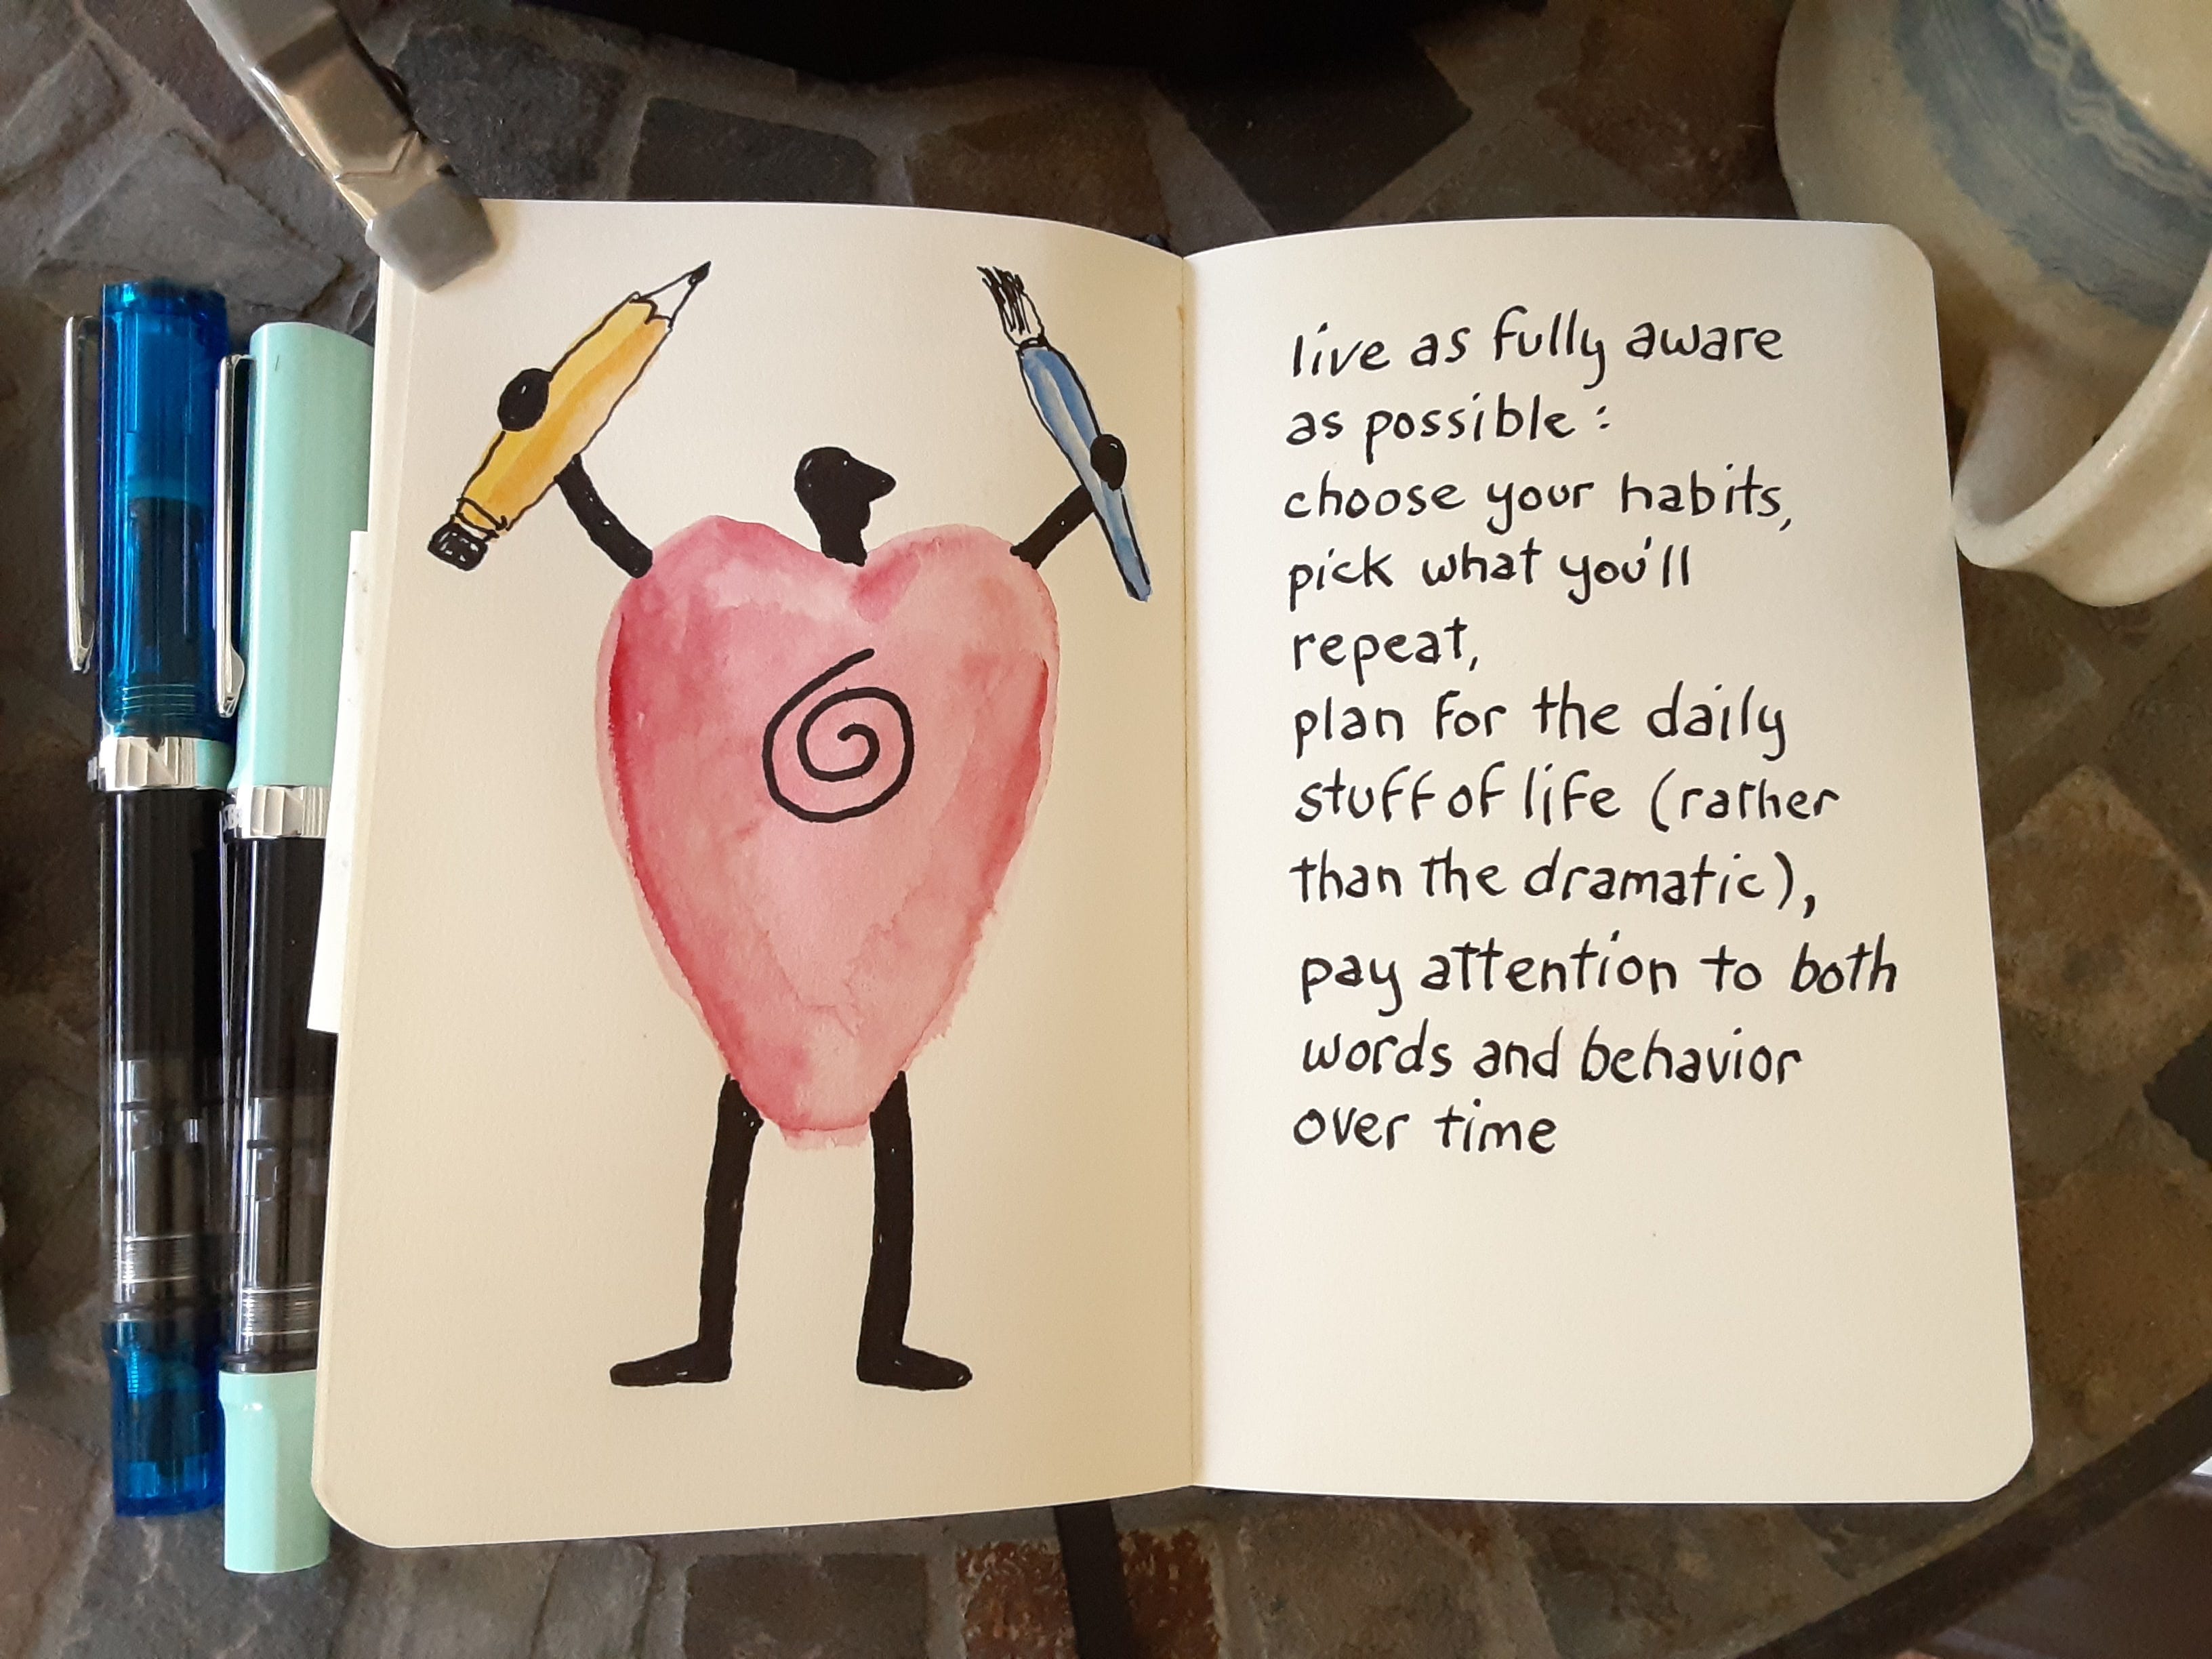 live as fully aware
as possible:
choose your habits,
pick what you'll
repeat,
plan for the daily
stuff of life (rather
than the dramatic),
pay attention to both
words and behavior
over time